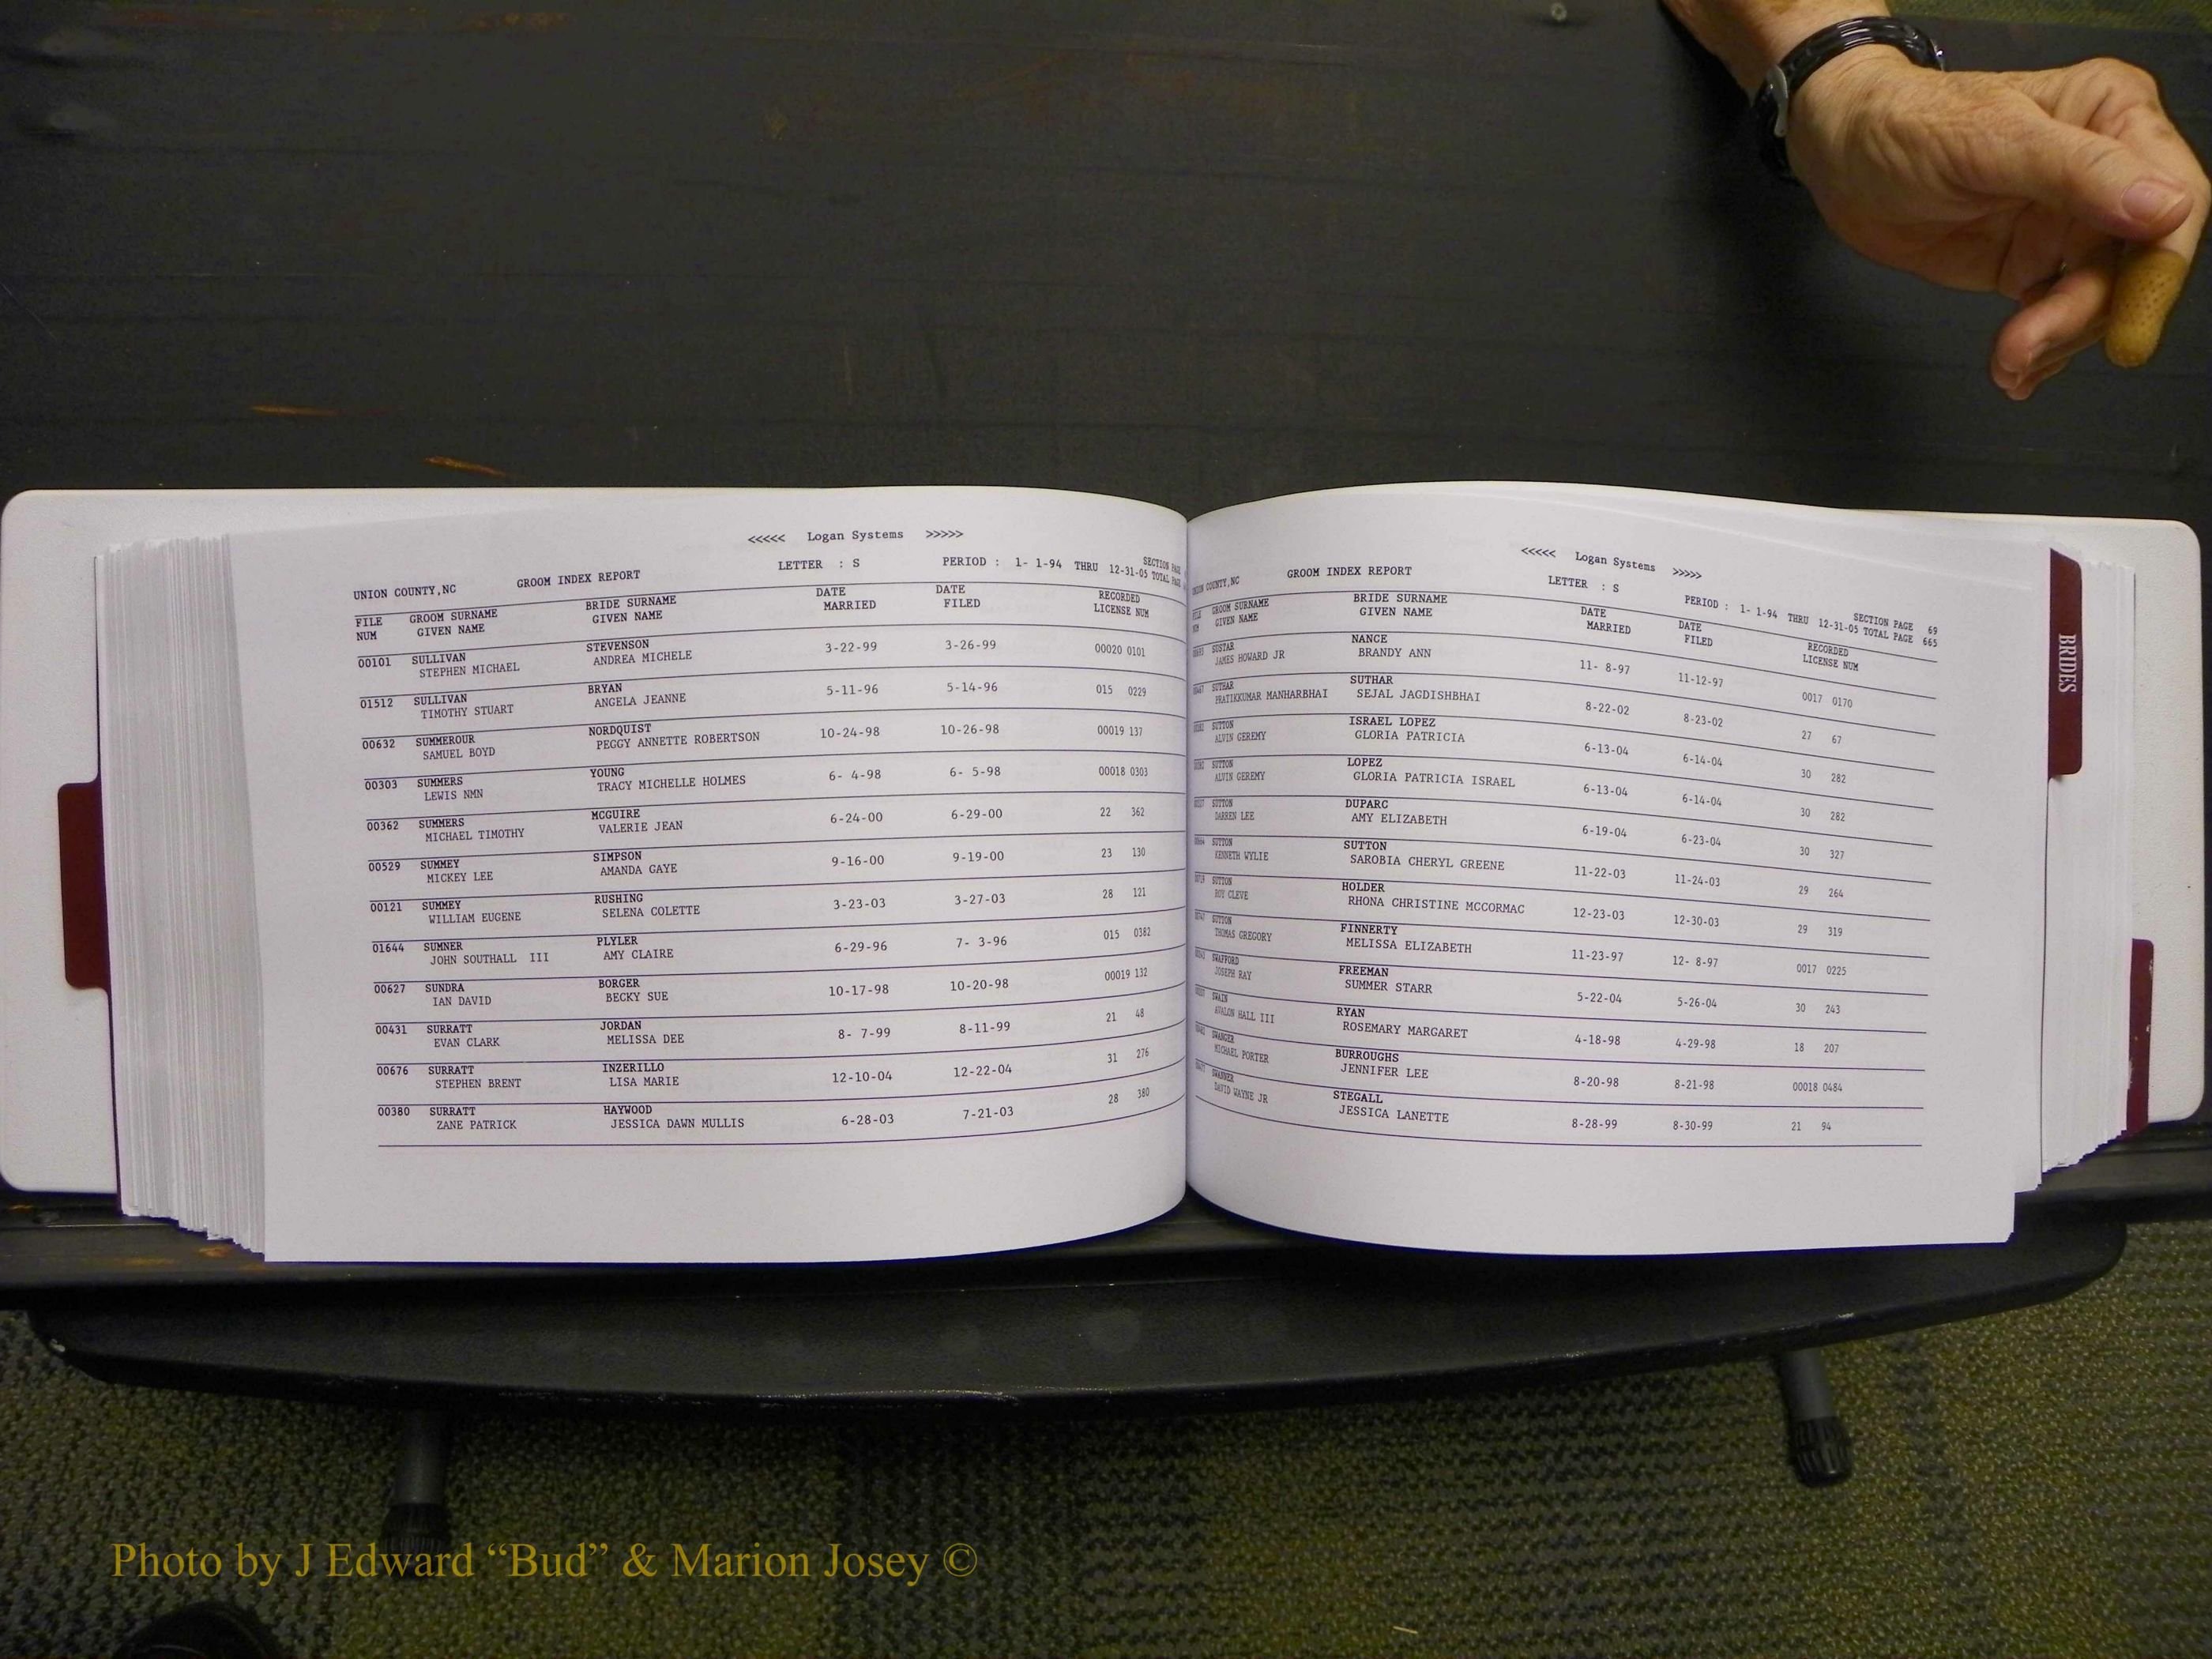 <<<<< Logan Systems >>>>>
UNION COUNTY,NC GROOM INDEX REPORT LETTER : S PERIOD : 1- 1-94 THRU 12-31-05 SECTION TOTAL
FILE GROOM SURNAME BRIDE SURNAME DATE DATE RECORDED
NUM GIVEN NAME GIVEN NAME MARRIED FILED LICENSE NUM
00101 SULLIVAN STEVENSON 3-22-99 3-26-99 00020 0101
STEPHEN MICHAEL ANDREA MICHELE
01512 SULLIVAN BRYAN 5-11-96 5-14-96 015 0229
TIMOTHY STUART ANGELA JEANNE
00632 SUMMEROUR NORDQUIST 10-24-98 10-26-98 00019 137
SAMUEL BOYD PEGGY ANNETTE ROBERTSON
00303 SUMMERS YOUNG 6- 4-98 6- 5-98 00018 0303
LEWIS NMN TRACY MICHELLE HOLMES
00362 SUMMERS MCGUIRE 6-24-00 6-29-00 22 362
MICHAEL TIMOTHY VALERIE JEAN
00529 SUMMEY SIMPSON 9-16-00 9-19-00 23 130
MICKEY LEE AMANDA GAYE
00121 SUMMEY RUSHING 3-23-03 3-27-03 28 121
WILLIAM EUGENE SELENA COLETTE
01644 SUMNER PLYLER 6-29-96 7- 3-96 015 0382
JOHN SOUTHALL III AMY CLAIRE
00627 SUNDRA BORGER 10-17-98 10-20-98 00019 132
IAN DAVID BECKY SUE
00431 SURRATT JORDAN 8- 7-99 8-11-99 21 48
EVAN CLARK MELISSA DEE
00676 SURRATT INZERILLO 12-10-04 12-22-04 31 276
STEPHEN BRENT LISA MARIE
00380 SURRATT HAYWOOD 6-28-03 7-21-03 28 380
ZANE PATRICK JESSICA DAWN MULLIS
<<<<< Logan Systems >>>>>
UNION COUNTY,NC GROOM INDEX REPORT LETTER : S PERIOD : 1- 1-94 THRU 12-31-05 SECTION PAGE 69
TOTAL PAGE 665
FILE GROOM SURNAME BRIDE SURNAME DATE DATE RECORDED
NUM GIVEN NAME GIVEN NAME MARRIED FILED LICENSE NUM
SUSTAR NANCE 11- 8-97 11-12-97 0017 0170
JAMES HOWARD JR BRANDY ANN
SUTHAR SUTHAR 8-22-02 8-23-02 27 67
PRATIKKUMAR MANHARBHAI SEJAL JAGDISHBHAI
SUTTON ISRAEL LOPEZ 6-13-04 6-14-04 30 282
ALVIN GEREMY GLORIA PATRICIA
SUTTON LOPEZ 6-13-04 6-14-04 30 282
ALVIN GEREMY GLORIA PATRICIA ISRAEL
SUTTON DUPARC 6-19-04 6-23-04 30 327
DARREN LEE AMY ELIZABETH
SUTTON SUTTON 11-22-03 11-24-03 29 264
KENNETH WYLIE SAROBIA CHERYL GREENE
SUTTON HOLDER 12-23-03 12-30-03 29 319
ROY CLEVE RHONA CHRISTINE MCCORMAC
SUTTON FINNERTY 11-23-97 12- 8-97 0017 0225
THOMAS GREGORY MELISSA ELIZABETH
SWAFFORD FREEMAN 5-22-04 5-26-04 30 243
JOSEPH RAY SUMMER STARR
SWAIN RYAN 4-18-98 4-29-98 18 207
AVALON HALL III ROSEMARY MARGARET
SWANGER BURROUGHS 8-20-98 8-21-98 00018 0484
MICHAEL PORTER JENNIFER LEE
SWANNER STEGALL 8-28-99 8-30-99 21 94
DAVID WAYNE JR JESSICA LANETTE
BRIDES
Photo by J Edward “Bud” & Marion Josey ©